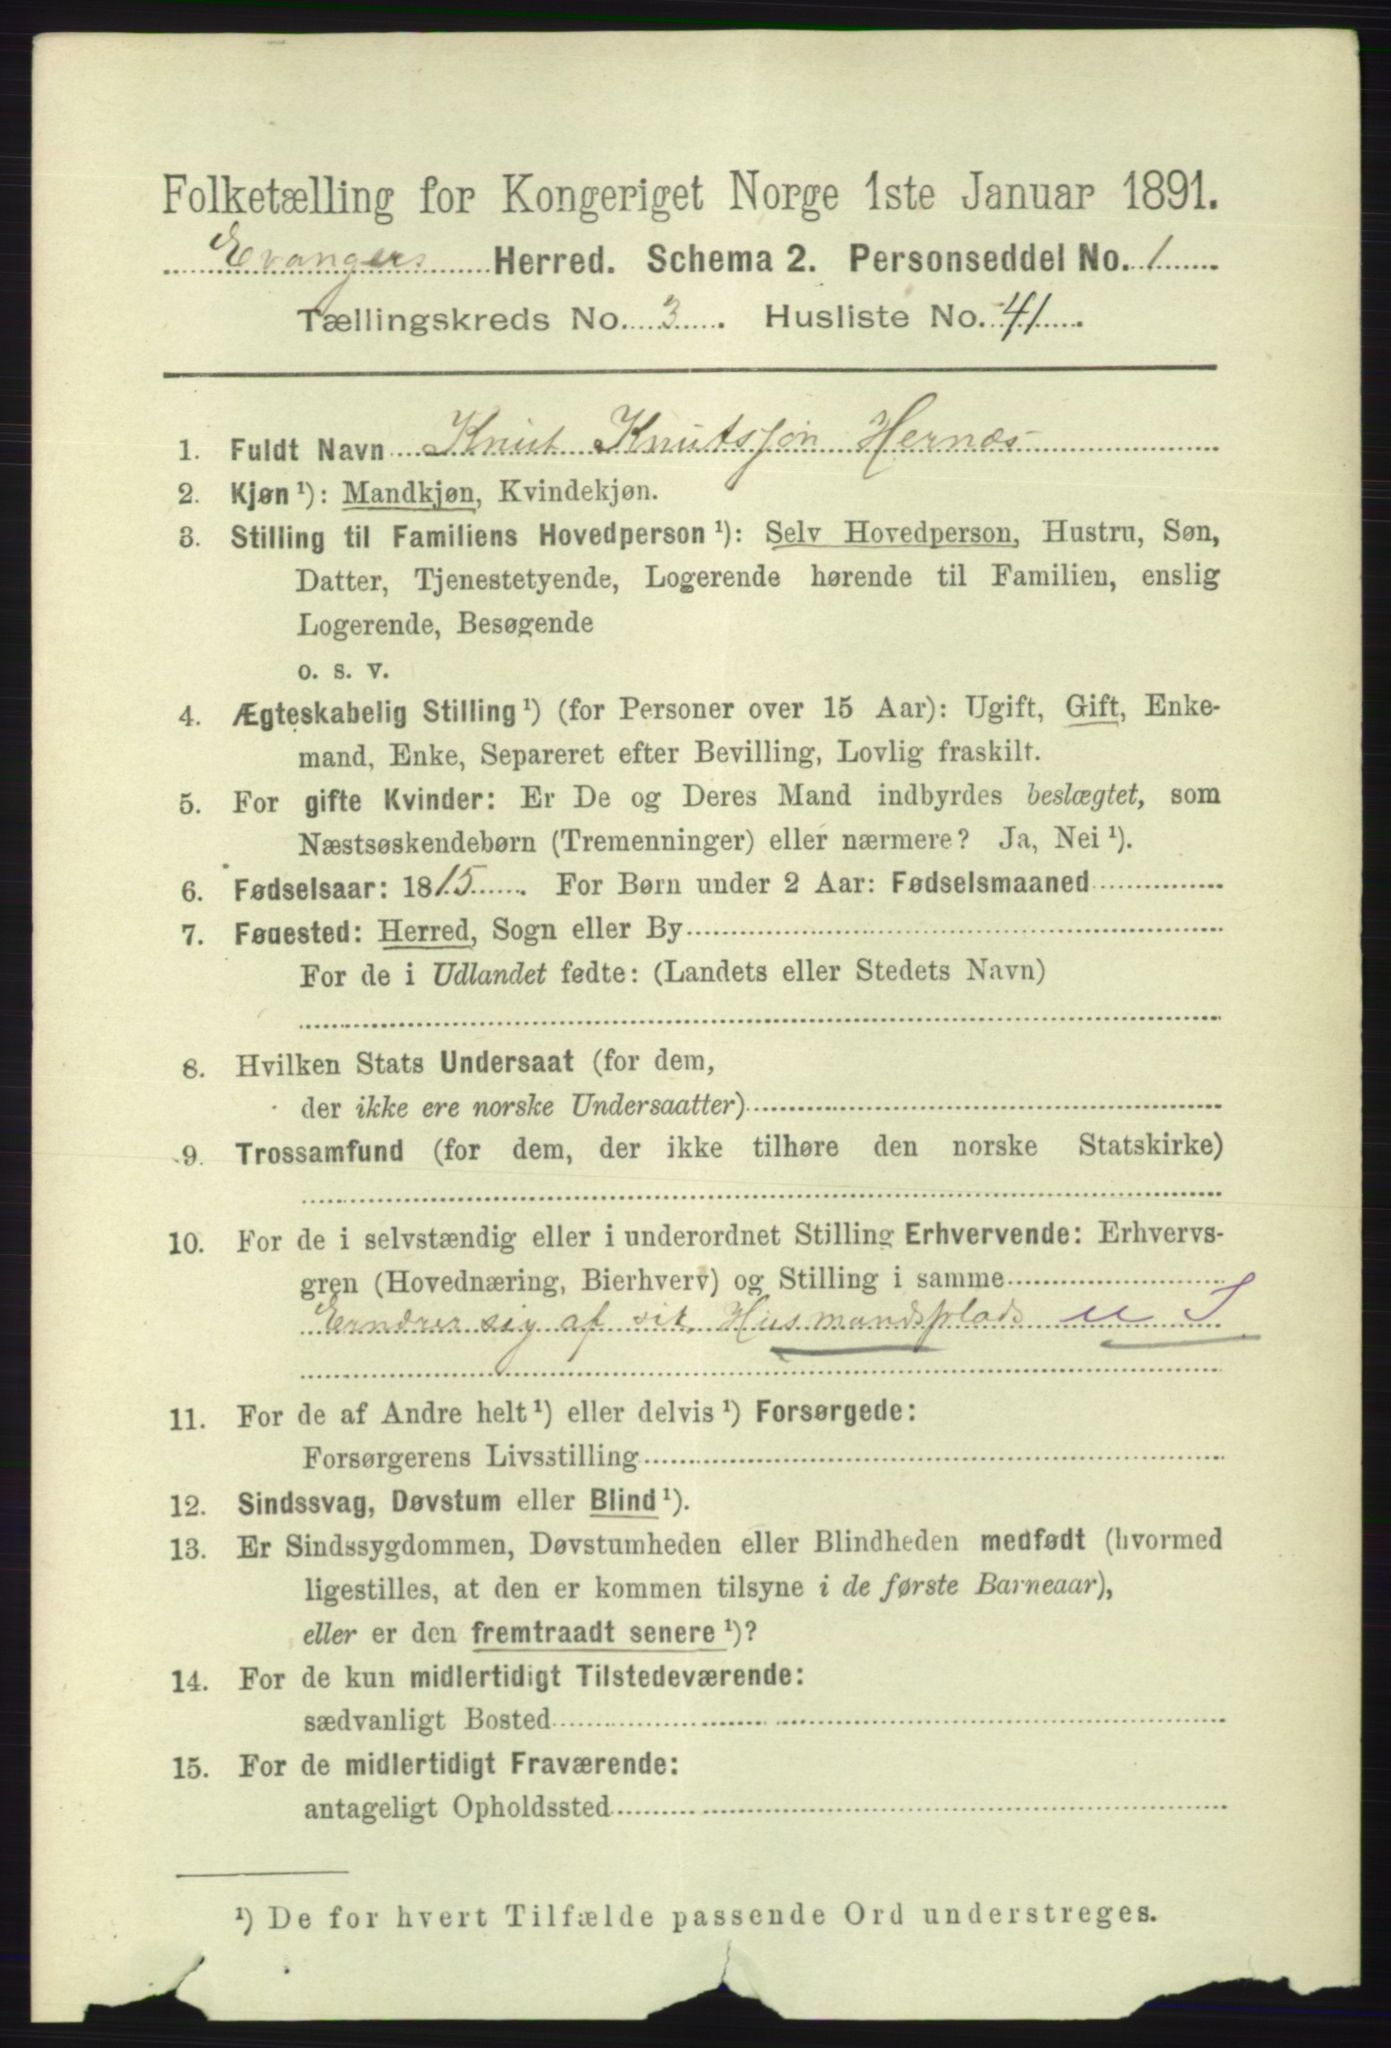 Folketælling for Kongeriget Norge 1ste Januar 1891.
Evangers Herred. Schema 2. Personseddel No. 1
Tællingskreds No. 3. Husliste No. 41.
1. Fuldt Navn Knut Knutssøn Hernæs
2. Kjøn ¹): Mandkjøn, Kvindekjøn.
3. Stilling til Familiens Hovedperson ¹): Selv Hovedperson, Hustru, Søn,
Datter, Tjenestetyende, Logerende hørende til Familien, enslig
Logerende, Besøgende
o. s. v.
4. Ægteskabelig Stilling ¹) (for Personer over 15 Aar): Ugift, Gift, Enke-
mand, Enke, Separeret efter Bevilling, Lovlig fraskilt.
5. For gifte Kvinder: Er De og Deres Mand indbyrdes beslægtet, som
Næstsøskendebørn (Tremenninger) eller nærmere? Ja, Nei ¹).
6. Fødselsaar: 1815. For Børn under 2 Aar: Fødselsmaaned
7. Fødested: Herred, Sogn eller By
For de i Udlandet fødte: (Landets eller Stedets Navn)
8. Hvilken Stats Undersaat (for dem,
der ikke ere norske Undersaatter)
9. Trossamfund (for dem, der ikke tilhøre den norske Statskirke)
10. For de i selvstændig eller i underordnet Stilling Erhvervende: Erhvervs-
gren (Hovednæring, Bierhverv) og Stilling i samme
Ernærer sig af sit Husmandsplads u J
11. For de af Andre helt ¹) eller delvis ¹) Forsørgede:
Forsørgerens Livsstilling
12. Sindssvag, Døvstum eller Blind ¹).
13. Er Sindssygdommen, Døvstumheden eller Blindheden medfødt (hvormed
ligestilles, at den er kommen tilsyne i de første Barneaar),
eller er den fremtraadt senere ¹)?
14. For de kun midlertidigt Tilstedeværende:
sædvanligt Bosted
15. For de midlertidigt Fraværende:
antageligt Opholdssted
¹) De for hvert Tilfælde passende Ord understreges.